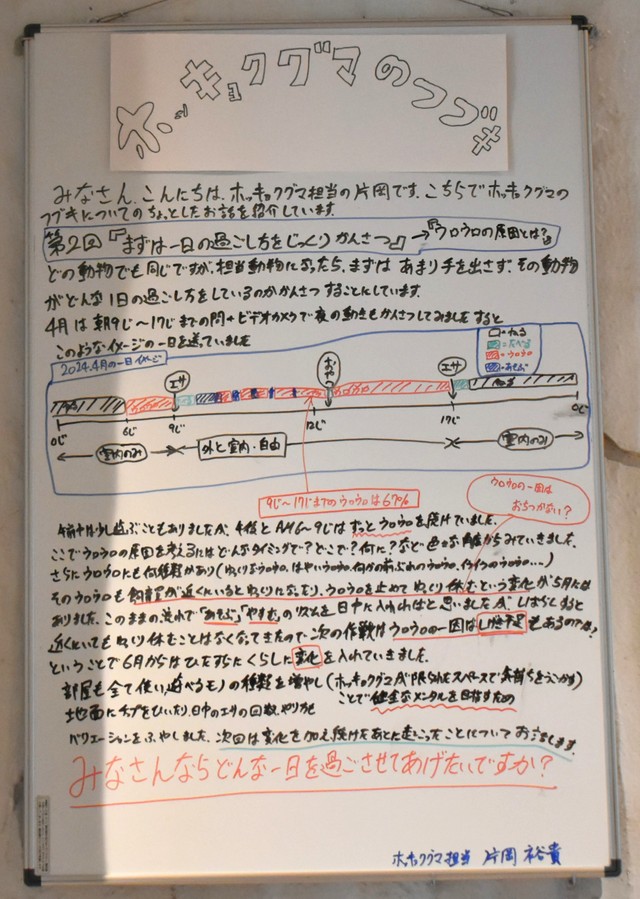 ホッキョクグマのフブキ
みなさん、こんにちは、ホッキョクグマ担当の片岡です。こちらでホッキョクグマの
フブキについてのちょっとしたお話を紹介しています。
第2回『まずは一日の過ごし方をじっくりかんさつ』→『ウロウロの原因とは?』
どの動物でも同じですが、担当動物になったら、まずは あまり手を出さず、その動物
がどんな1日の過ごし方をしているのかかんさつ することにしています。
4月は 朝9じ〜17じまでの間+ビデオカメラで夜の動きもかんさつしてみましたすると
このようなイメージの一日を送っていました
2024.4月の一日イメージ
□=ねる
=たべる
=ウロウロ
=あそぶ
エサ
おやつ
エサ
ねる
0じ
6じ
9じ
12じ
17じ
0じ
室内のみ
外と室内・自由
室内のみ
9じ〜17じまでのウロウロは67%
ウロウロの一因は
おちつかない?
午前中は少し遊ぶこともありましたが、午後とAM6〜9じはずっとウロウロを続けていました。
ここでウロウロの原因を考えるにはどんなタイミングで?どこで?何に?など色々な角度からみていきました。
さらにウロウロにも何種類かあり(ゆっくりなウロウロ、はやいウロウロ、何かの前ぶれのウロウロ、イライラのウロウロ…)
そのウロウロも飼育員が近くにいるとゆっくりになったり、ウロウロを止めてゆっくり休むという変化が5月には
ありました。このままの流れで「あそぶ」「やすむ」のリズムを日中に入れればと思いましたが、しばらくすると
近くにいてもゆっくり休むことはなくなってきたので次の作戦はウロウロの一因は刺激不足もあるのでは?
ということで6月からはひたすらにくらしに変化を入れていきました。
部屋も全て使い、遊べるモノの種類を増やし(ホッキョクグマが限られたスペースで気持ちをうごかす)
ことで健全なメンタルを目指すため
地面にチップをひいたり、日中のエサの回数、やり方も
バリエーションをふやしました。次回は変化を加え続けたあとに起こったことについてお話します。
みなさんならどんな一日を過ごさせてあげたいですか?
ホッキョクグマ担当 片岡 裕貴